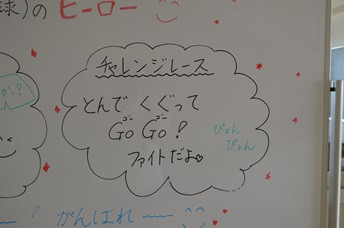 球)の ヒーロー
チャレンジレース
とんで くぐって
GoゴーGoゴー!
ファイトだよ
ぴょん
ぴょん
がんばれ